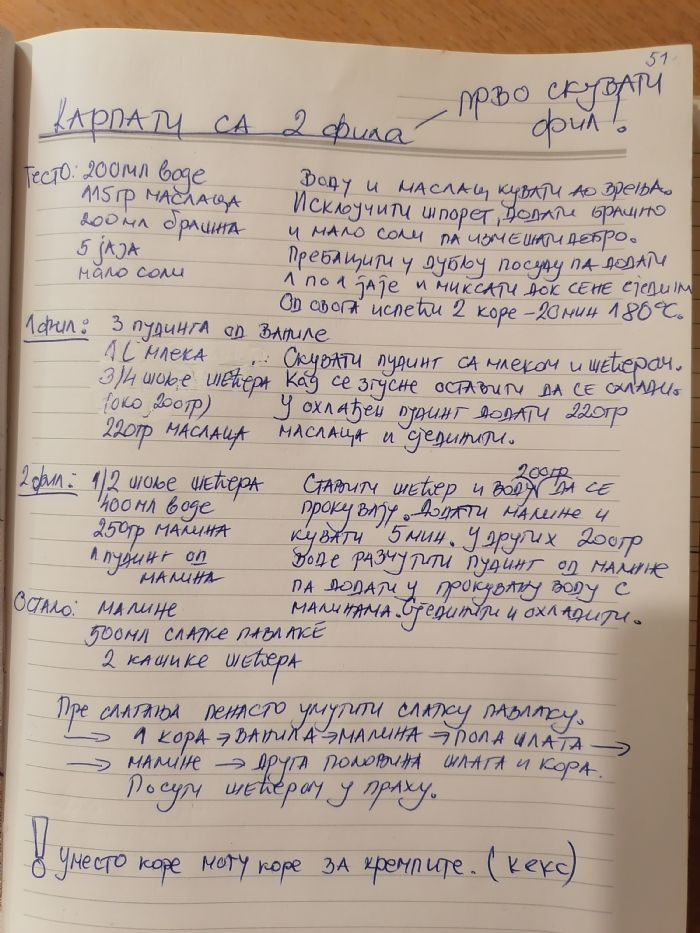 51
КАРПАТИ СА 2 ФИЛА — ПРВО СКУВАТИ
ФИЛ!
ТЕСТО: 200МЛ ВОДЕ
115ГР МАСЛАЦА
200МЛ БРАШНА
5 ЈАЈА
МАЛО СОЛИ
ВОДУ И МАСЛАЦ КУВАТИ ДО ВРЕЊА.
ИСКЉУЧИТИ ШПОРЕТ, ДОДАТИ БРАШНО
И МАЛО СОЛИ ПА ИЗМЕШАТИ ДОБРО.
ПРЕБАЦИТИ У ДУБЉУ ПОСУДУ ПА ДОДАТИ
1 ПО 1 ЈАЈЕ И МИКСАТИ ДОК СЕ НЕ СЈЕДИНИ
ОД ОВОГА ИСПЕЋИ 2 КОРЕ - 20МИН 180°C.
1 ФИЛ: 3 ПУДИНГА ОД ВАНИЛЕ
1Л МЛЕКА
3/4 ШОЉЕ ШЕЋЕРА
(ОКО 200ГР)
220ГР МАСЛАЦА
СКУВАТИ ПУДИНГ СА МЛЕКОМ И ШЕЋЕРОМ.
КАД СЕ ЗГУСНЕ ОСТАВИТИ ДА СЕ ОХЛАДИ.
У ОХЛАЂЕН ПУДИНГ ДОДАТИ 220ГР
МАСЛАЦА И СЈЕДИНИТИ.
2 ФИЛ: 1/2 ШОЉЕ ШЕЋЕРА
400МЛ ВОДЕ
250ГР МАЛИНА
1 ПУДИНГ ОД
МАЛИНА
200ГР
СТАВИТИ ШЕЋЕР И ВОДУ ДА СЕ
ПРОКУВАЈУ. ДОДАТИ МАЛИНЕ И
КУВАТИ 5 МИН. У ДРУГИХ 200ГР
ВОДЕ РАЗМУТИТИ ПУДИНГ ОД МАЛИНЕ
ПА ДОДАТИ У ПРОКУВАНУ ВОДУ С
МАЛИНАМА. СЈЕДИНИТИ И ОХЛАДИТИ.
ОСТАЛО: МАЛИНЕ
500МЛ СЛАТКЕ ПАВЛАКЕ
2 КАШИКЕ ШЕЋЕРА
ПРЕ СЛАГАЊА ПЕНАСТО УМУТИТИ СЛАТКУ ПАВЛАКУ.
→ 1 КОРА → ВАНИЛА → МАЛИНА → ПОЛА ШЛАГА →
→ МАЛИНЕ → ДРУГА ПОЛОВИНА ШЛАГА И КОРА.
ПОСУТИ ШЕЋЕРОМ У ПРАХУ.
! УМЕСТО КОРЕ МОГУ КОРЕ ЗА КРЕМПИТЕ. (КЕКС)